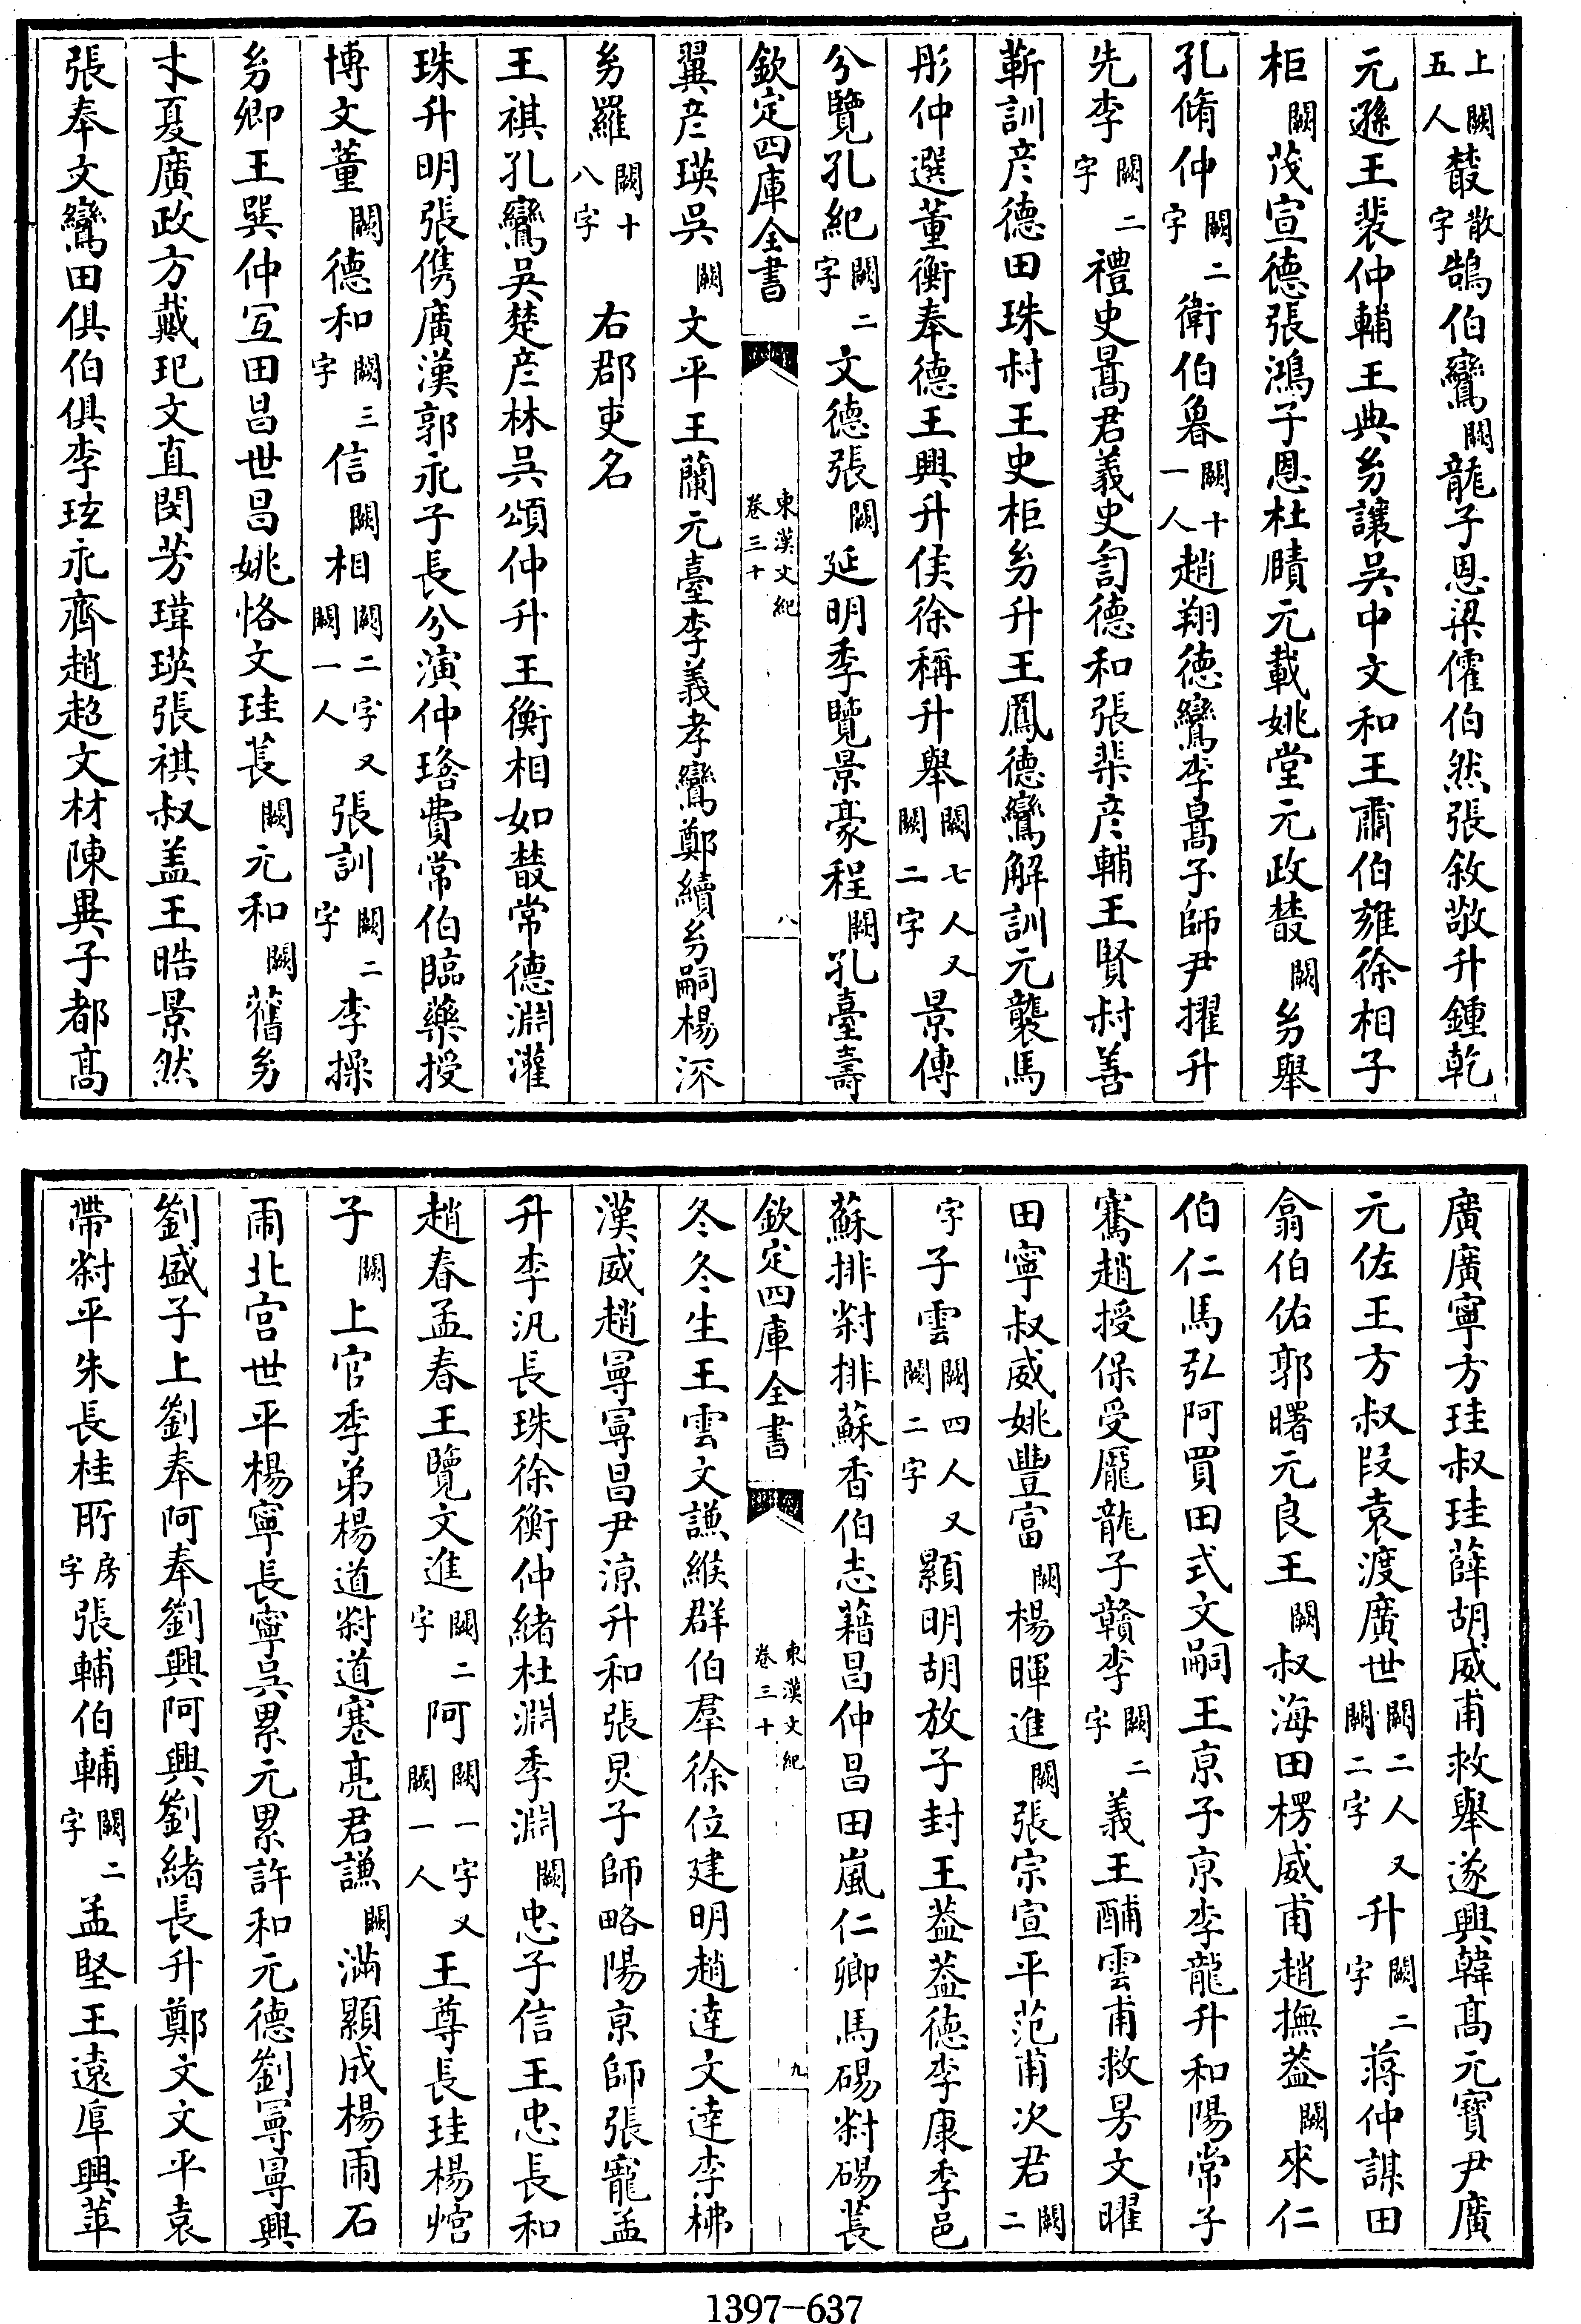 上闕五人鼗散字鵠伯鸞闕龍子恩梁儒伯然張敘敬升鍾乾
元遜王裴仲輔王典㓜讓吳中文和王肅伯雍徐相子
柜闕茂宣德張鴻子恩杜賾元載姚堂元政鼗闕㓜舉
孔脩仲闕二字衛伯㬱闕十一人趙翔德鸞李暠子師尹擢升
先李闕二字禮史暠君義史訇德和張棐彥輔王賢尌善
蘄訓彥德田珠尌王史柜㓜升王鳳德鸞解訓元襲馬
彤仲選董衡奉德王興升侯徐稱升舉闕七人又闕二字景傅
分覽孔紀闕二字文德張闕延明季覽景豪程闕孔臺壽
欽定四庫全書 東漢文紀 卷三十 八
翼彥瑛吳闕文平王蘭元臺李義孝鸞鄭續㓜嗣楊深
㓜羅闕十八字 右郡吏名
王祺孔鸞吳楚彥林吳頌仲升王衡相如鼗常德淵灌
珠升明張儁廣漢郭永子長分演仲璿費常伯臨藥授
博文董闕德和闕三字信闕相闕二字又闕一人張訓闕二字李操
㓜卿王巽仲冝田昌世昌姚恪文珪萇闕元和闕舊㓜
才夏廣政方戴玘文直閔芳瑋瑛張祺叔盖王晧景然
張奉文鸞田俱伯俱李玹永齊趙超文材陳異子都髙
廣廣寧方珪叔珪薛胡威甫救舉遂興韓髙元寶尹廣
元佐王方叔叚袁渡廣世闕二人又闕二字升闕二字蔣仲謀田
翕伯佑郭曙元良王闕叔海田楞威甫趙撫葢闕來仁
伯仁馬弘阿買田式文嗣王京子京李龍升和陽常子
騫趙授保受龎龍子贛李闕二字義王酺雲甫救昮文曜
田寧叔威姚豐富闕楊暉進闕張宗宣平范甫次君闕二
字子雲闕四人又闕二字顯明胡放子封王葢葢德李康季邑
蘇排尌排蘇香伯志藉昌仲昌田嵐仁卿馬碭尌碭萇
欽定四庫全書 東漢文紀 卷三十 九
冬冬生王雲文謙緱群伯羣徐位建明趙逹文逹李柫
漢威趙㝷寧昌尹涼升和張炅子師略陽京師張寵孟
升李汎長珠徐衡仲緒杜淵季淵闕忠子信王忠長和
趙春孟春王覽文進闕二字阿闕一字又闕一人王尊長珪楊㤿
子闕上官季弟楊道尌道蹇亮君謙闕滿顯成楊雨石
雨北宫世平楊寧長寧吳累元累許和元德劉㝷㝷興
劉盛子上劉奉阿奉劉興阿興劉緒長升鄭文文平袁
帶尌平朱長桂㪽房字張輔伯輔闕二字孟堅王遠阜興苹
1397-637